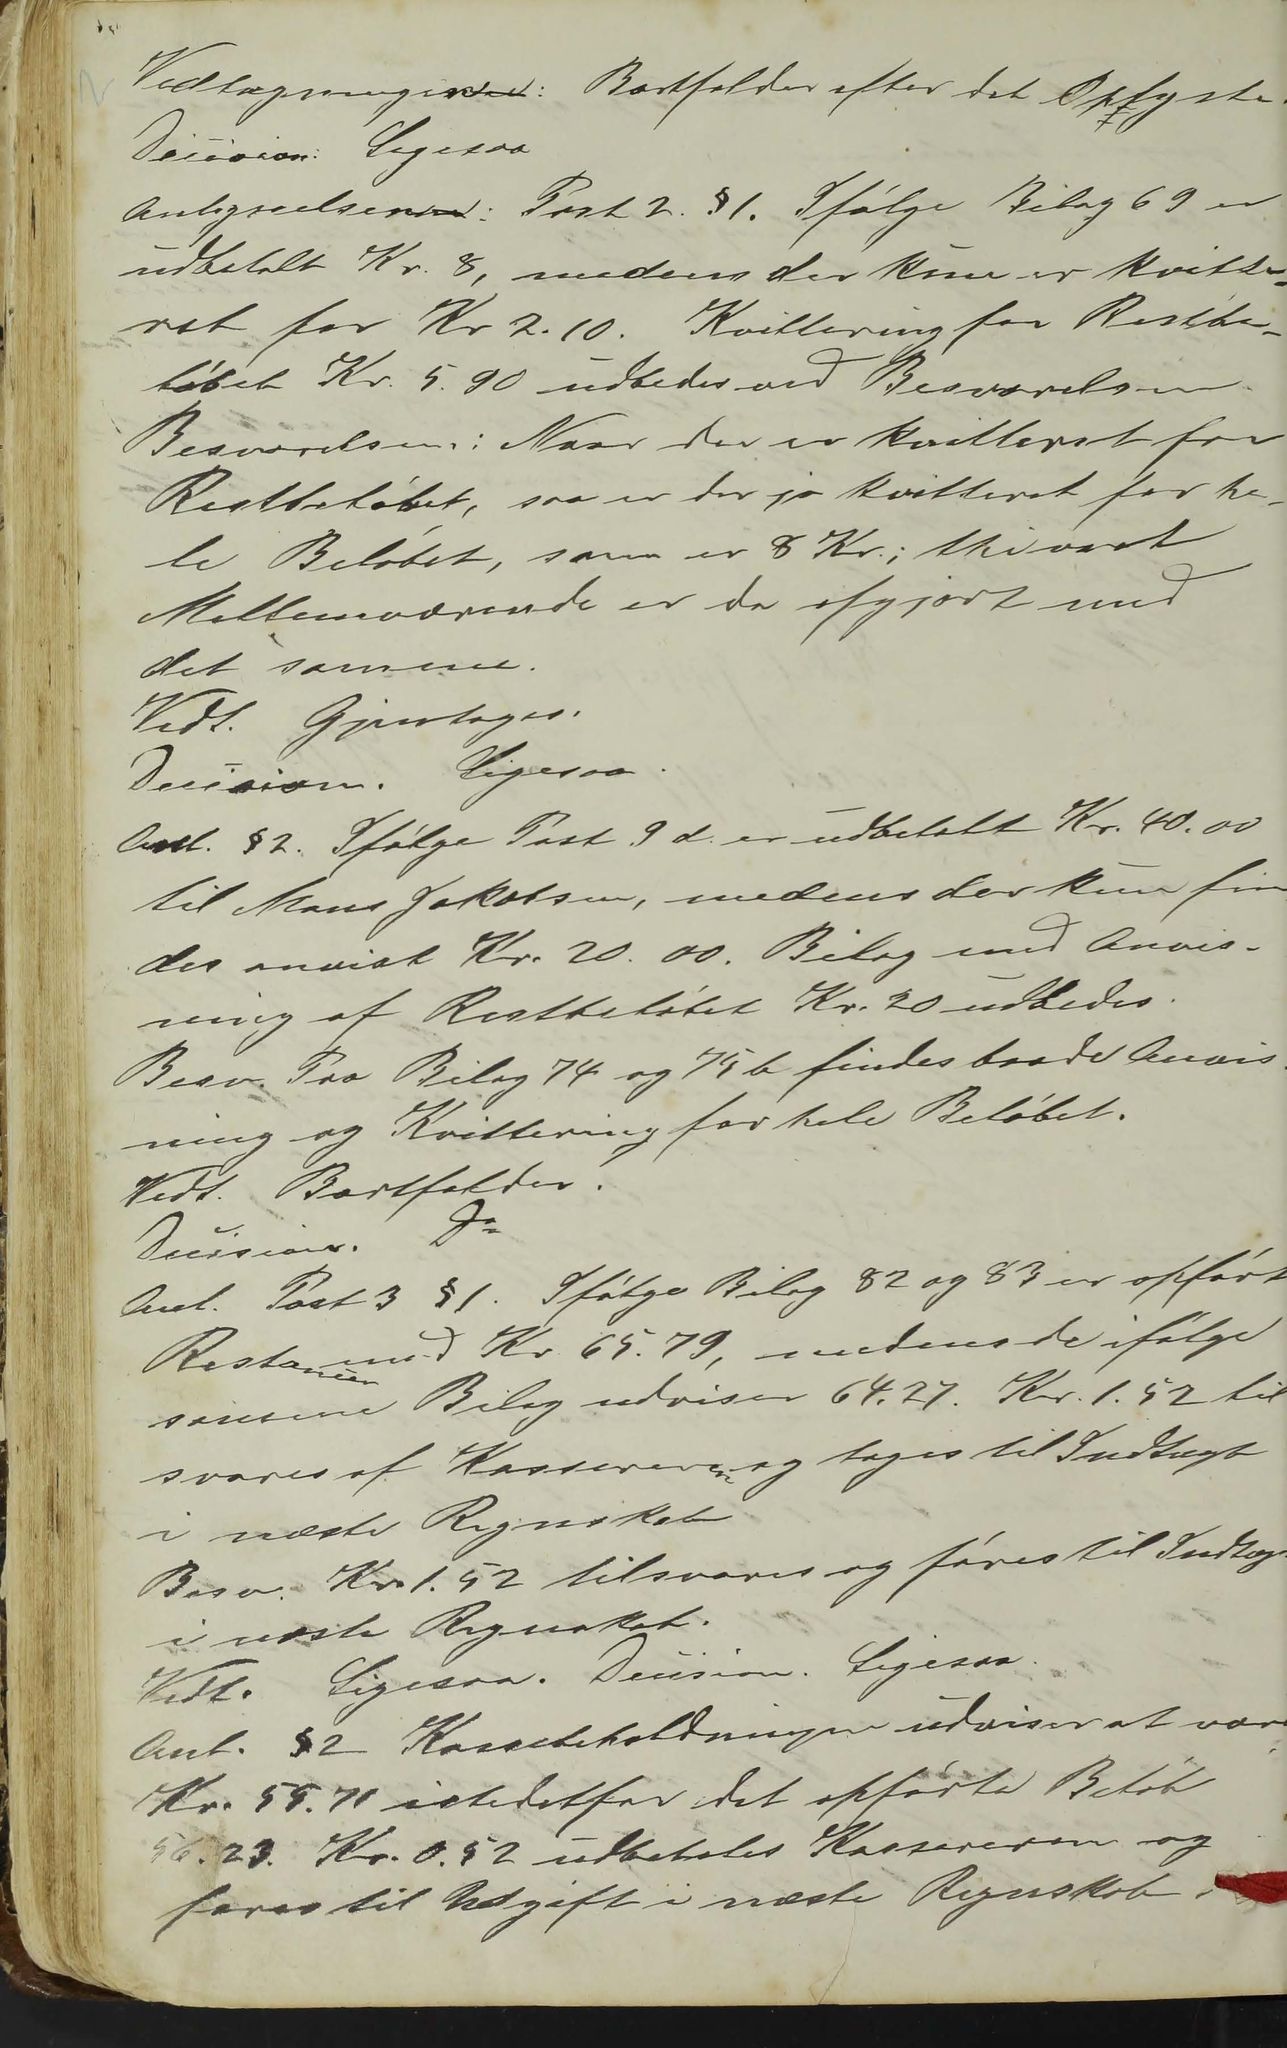 Vedtagningen: Bortfalder efter det Oplyste.
Decision: Ligesaa
Antegnelsen: Post 2. §1. Ifølge Bilag 69 er
udbetalt Kr. 8, medens der kun er kvitte-
ret for Kr 2.10. Kvittering for Restbe-
løbet Kr. 5.90 udbedes ved Besvarelsen
Besvarelsen: Naar der er kvitteret for
Restbeløbet, saa er der jo kvitteret for he-
le Beløbet, som er 8 Kr.; thi vort
Mellemværende er da afgjort med
det samme.
Vedt. Gjentages.
Decision. Ligesaa.
Ant. §2. Ifølge Post 9 d. er udbetalt Kr. 40.00
til Mons Jakobsen, medens der kun fin
des anvist Kr. 20.00. Bilag med Anvis-
ning af Restbeløbet Kr. 20 udbedes.
Besv. Paa Bilag 74 og 75 b findes baade Anvis-
ning og Kvittering for hele Beløbet.
Vedt. Bortfalder.
Decision. Do
Ant. Post 3 §1. Ifølge Bilag 82 og 83 er opført
Restancen med Kr. 65.79, medens de ifølge
samme Bilag udviser 64.27. Kr. 1.52 til
svares af Kassereren og tages til Indtægt
i næste Regnskab
Besv. Kr 1.52 tilsvares og føres til Indtægt
i næste Regnskab.
Vedt. Ligesaa. Decision. Ligesaa.
Ant. §2 Kassebeholdningen udviser at være
Kr. 55.71 istedetfor det opførte Beløb
56.23. Kr. 0.52 udbetales Kassereren og
føres til Udgift i næste Regnskab.